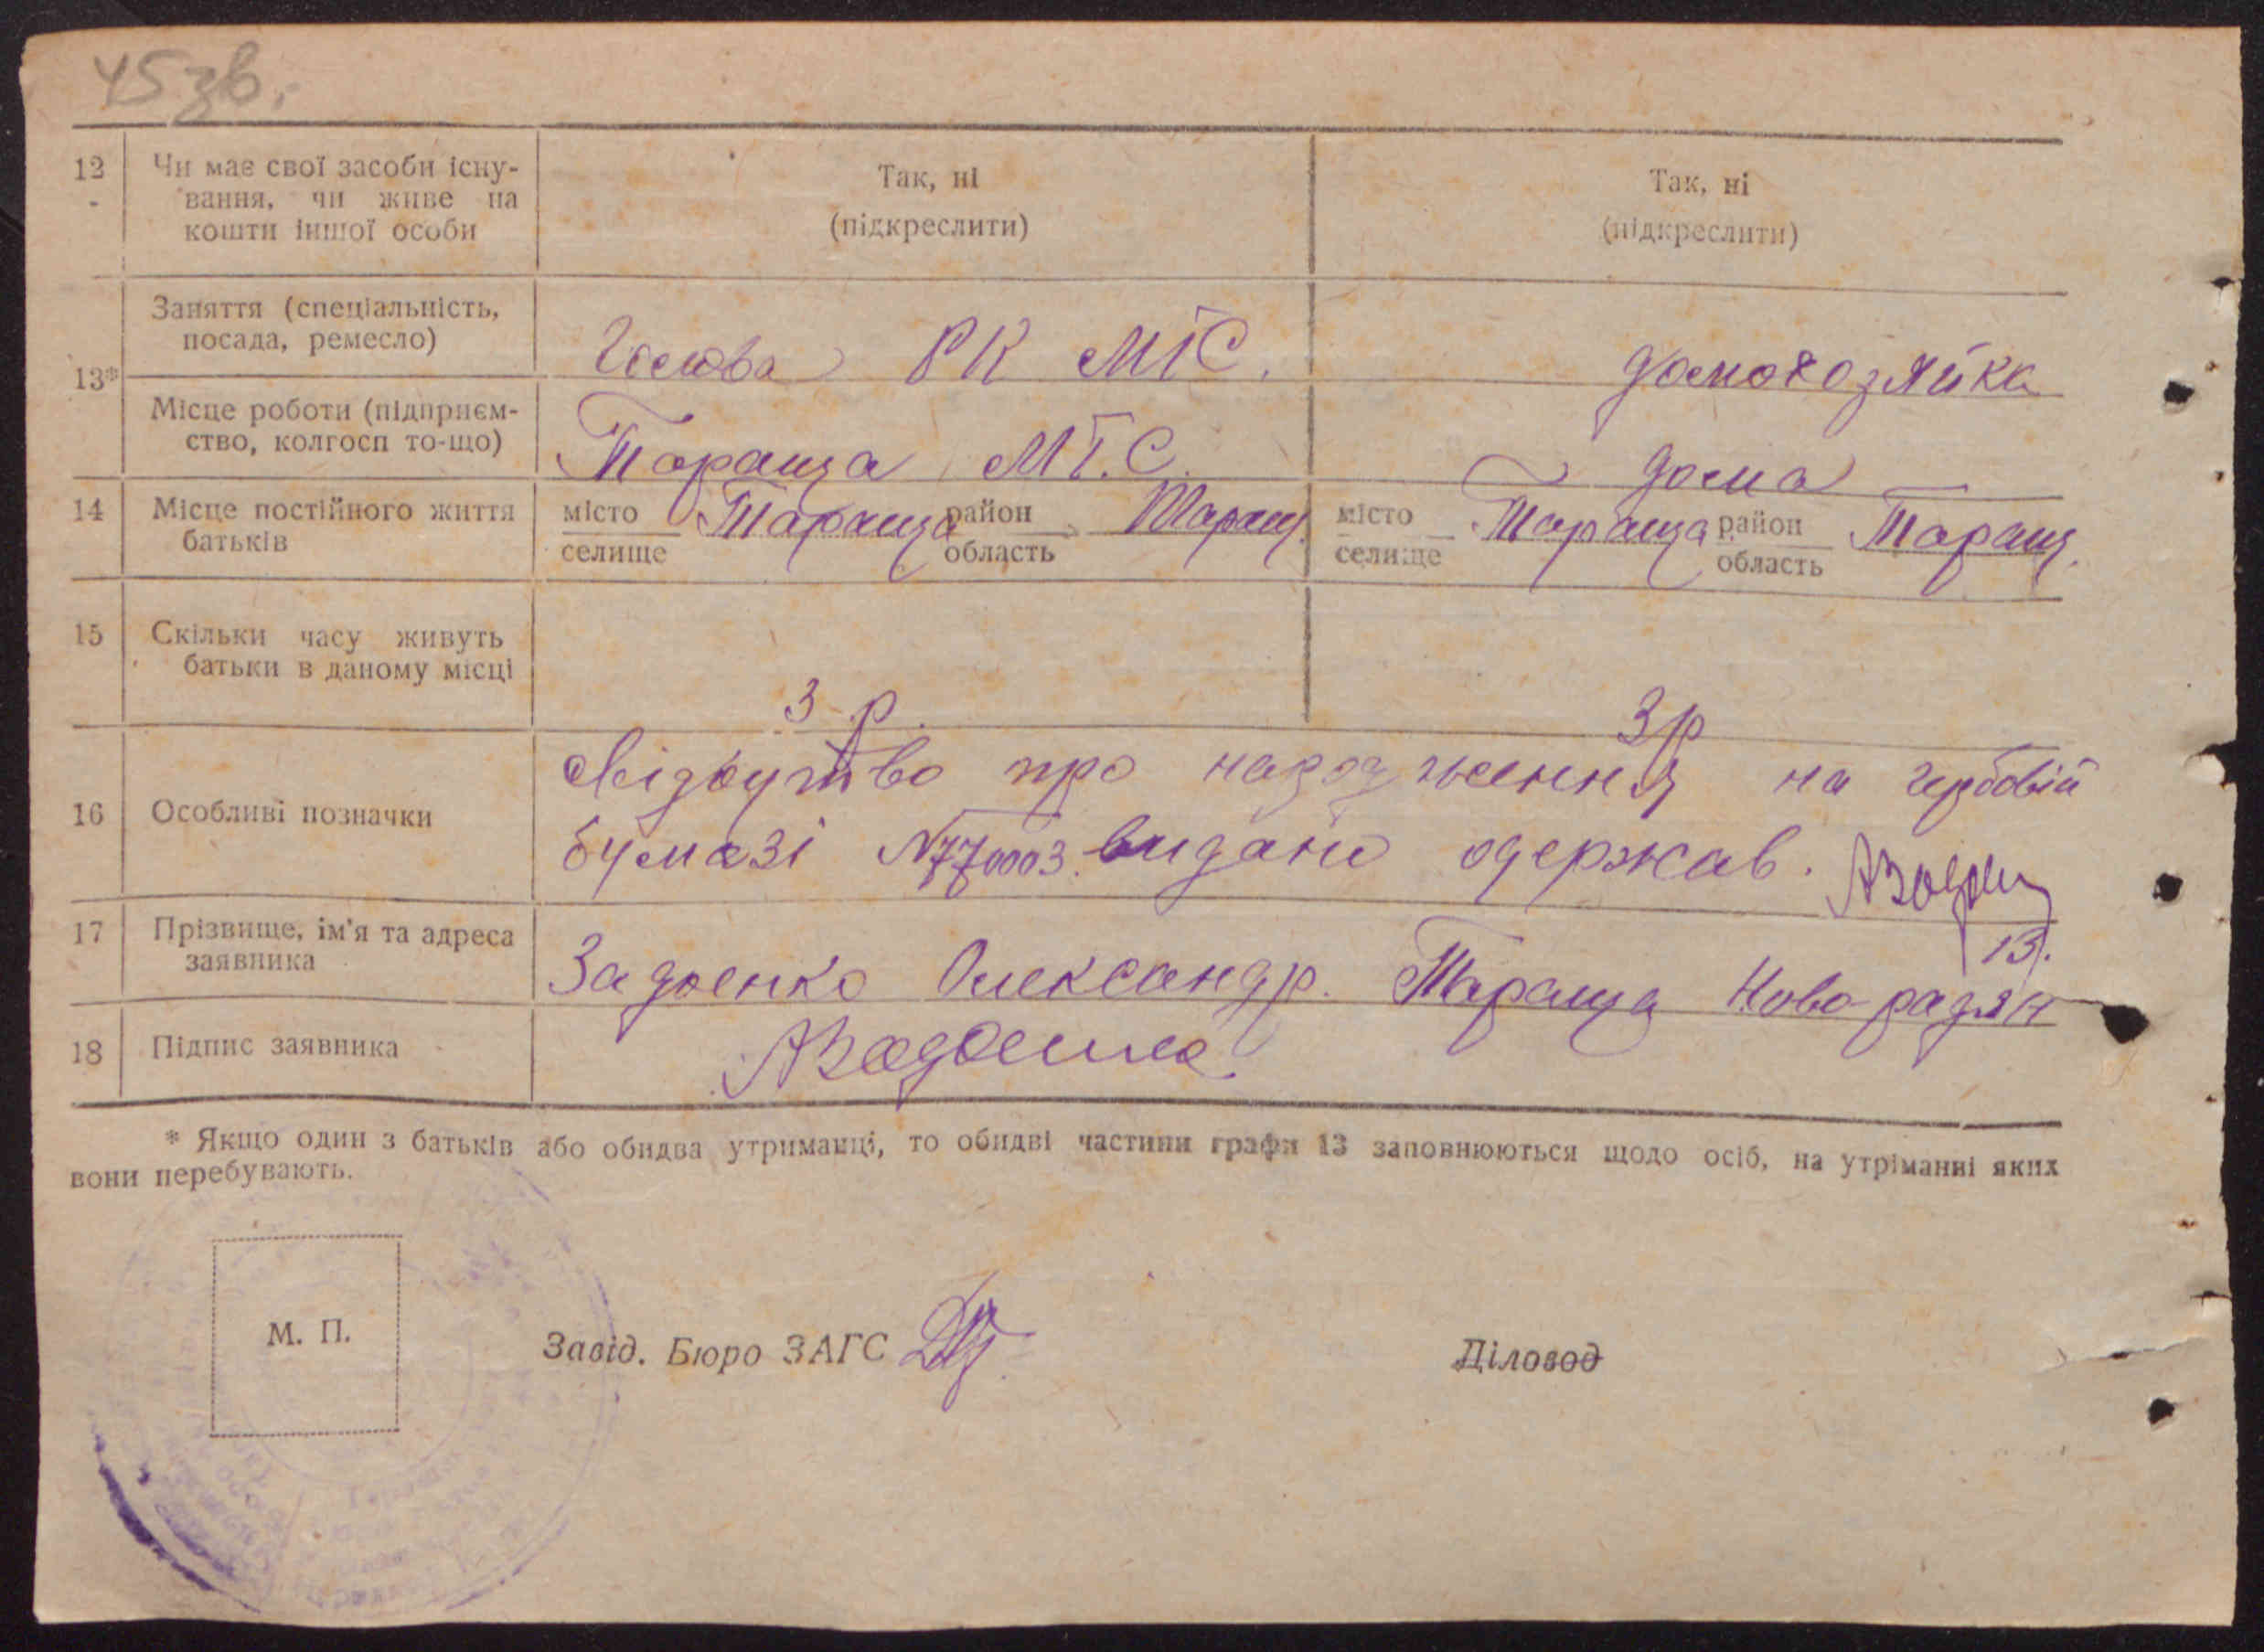 45 зв.
12 Чи має свої засоби існу-
вання, чи живе на
кошти іншої особи
Так, ні
(підкреслити)
Так, ні
(підкреслити)
13*
Заняття (спеціальність,
посада, ремесло)
Голова РК МТС.
домохозяйка
Місце роботи (підприєм-
ство, колгосп то-що)
Тараща МТ.С.
дома
14 Місце постійного життя
батьків
місто
селище
Тараща
район
область
Таращ.
місто
селище
Тараща
район
область
Таращ.
15 Скільки часу живуть
батьки в даному місці
3 р.
3 р
16 Особливі позначки
Свідоцтво про народження на гербовій
бумазі №770003. видано одержав.
17 Прізвище, ім'я та адреса
заявника
Задоенко Олександр. Тараща Ново-радян
13.
18 Підпис заявника
АЗадоенко
* Якщо один з батьків або обидва утриманці, то обидві частини графи 13 заповнюються щодо осіб, на утріманні яких
вони перебувають.
М. П.
Завід. Бюро ЗАГС
Діловод